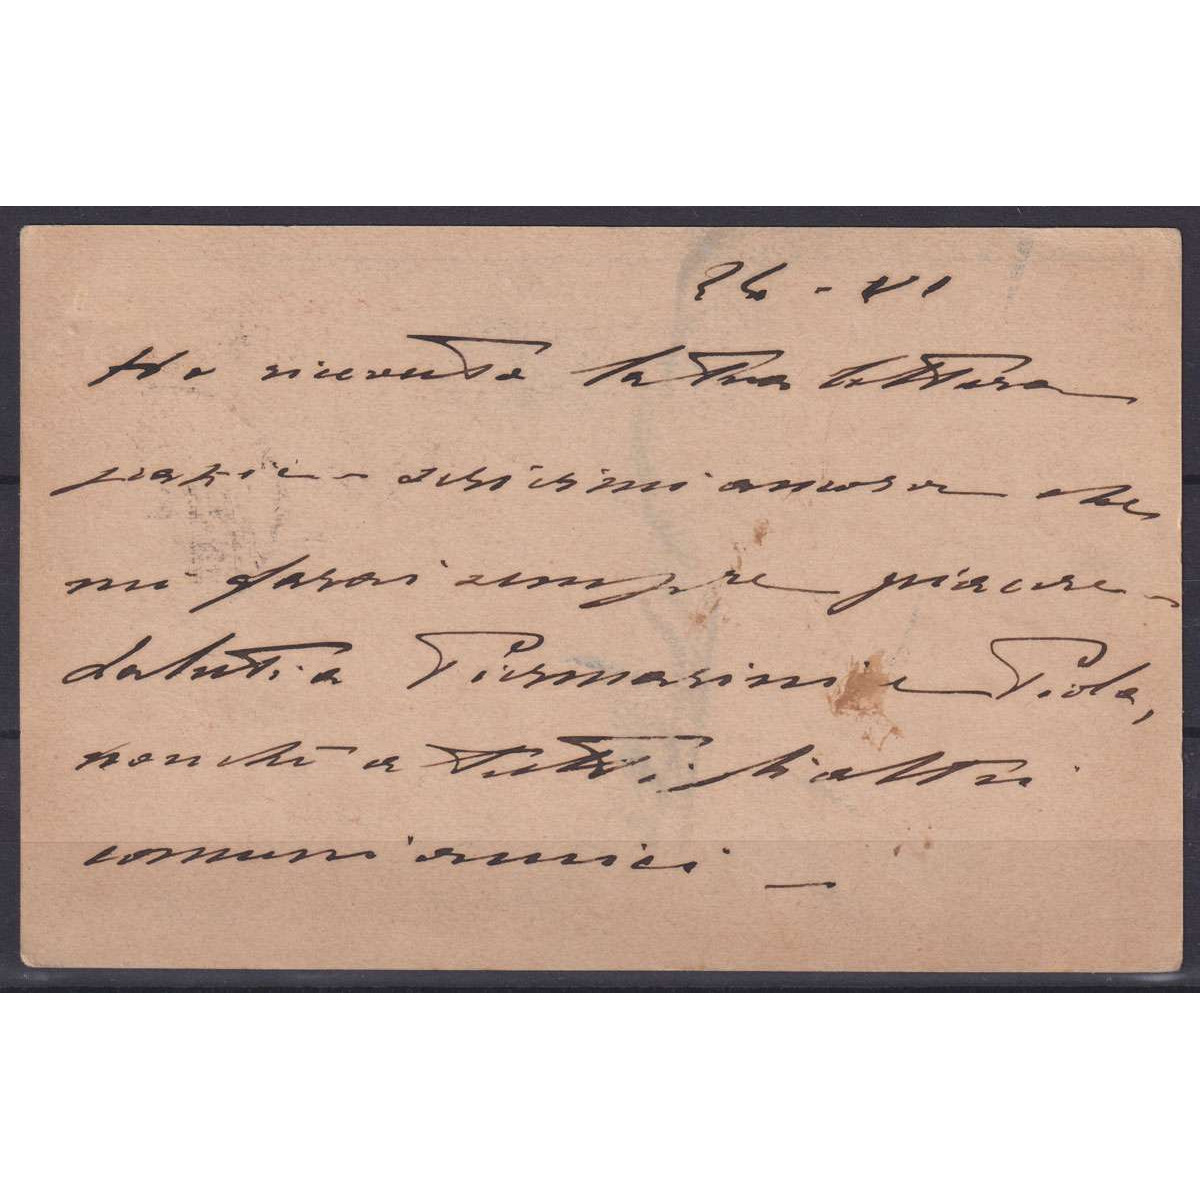 26 - VI
Ho ricevuto la tua lettera
grazie - scrivimi ancora che
mi farai sempre piacere -
Saluta Piermarini e Piola,
nonchè a tutti gli altri
comuni amici —